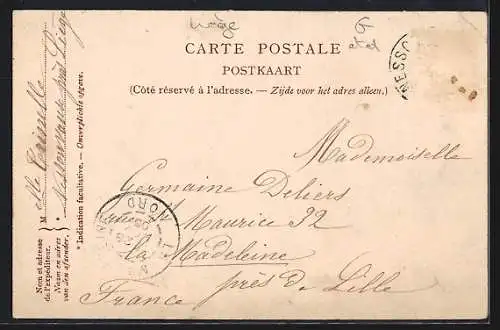 CARTE POSTALE
POSTKAART
(Côté réservé à l'adresse. — Zijde voor het adres alleen.)
Mademoiselle
Germaine Deliers
Maurice 32
La Madeleine
près de Lille
France
NORD
NESSO
Nom et adresse
de l'expéditeur.
Naam en adres
van den afzender.
M
elle
près Liège
* Indication facultative. — Onverplichte opgave.